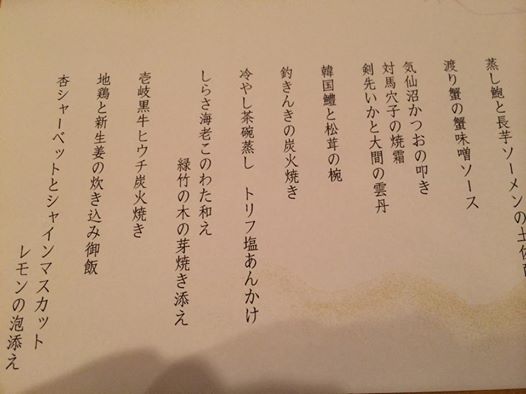 蒸し鮑と長芋ソーメンの土佐
渡り蟹の蟹味噌ソース
気仙沼かつおの叩き
対馬穴子の焼霜
剣先いかと大間の雲丹
韓国鱧と松茸の椀
釣きんきの炭火焼き
冷やし茶碗蒸し トリフ塩あんかけ
しらさ海老このわた和え
緑竹の木の芽焼き添え
壱岐黒牛ヒウチ炭火焼き
地鶏と新生姜の炊き込み御飯
杏シャーベットとシャインマスカット
レモンの泡添え